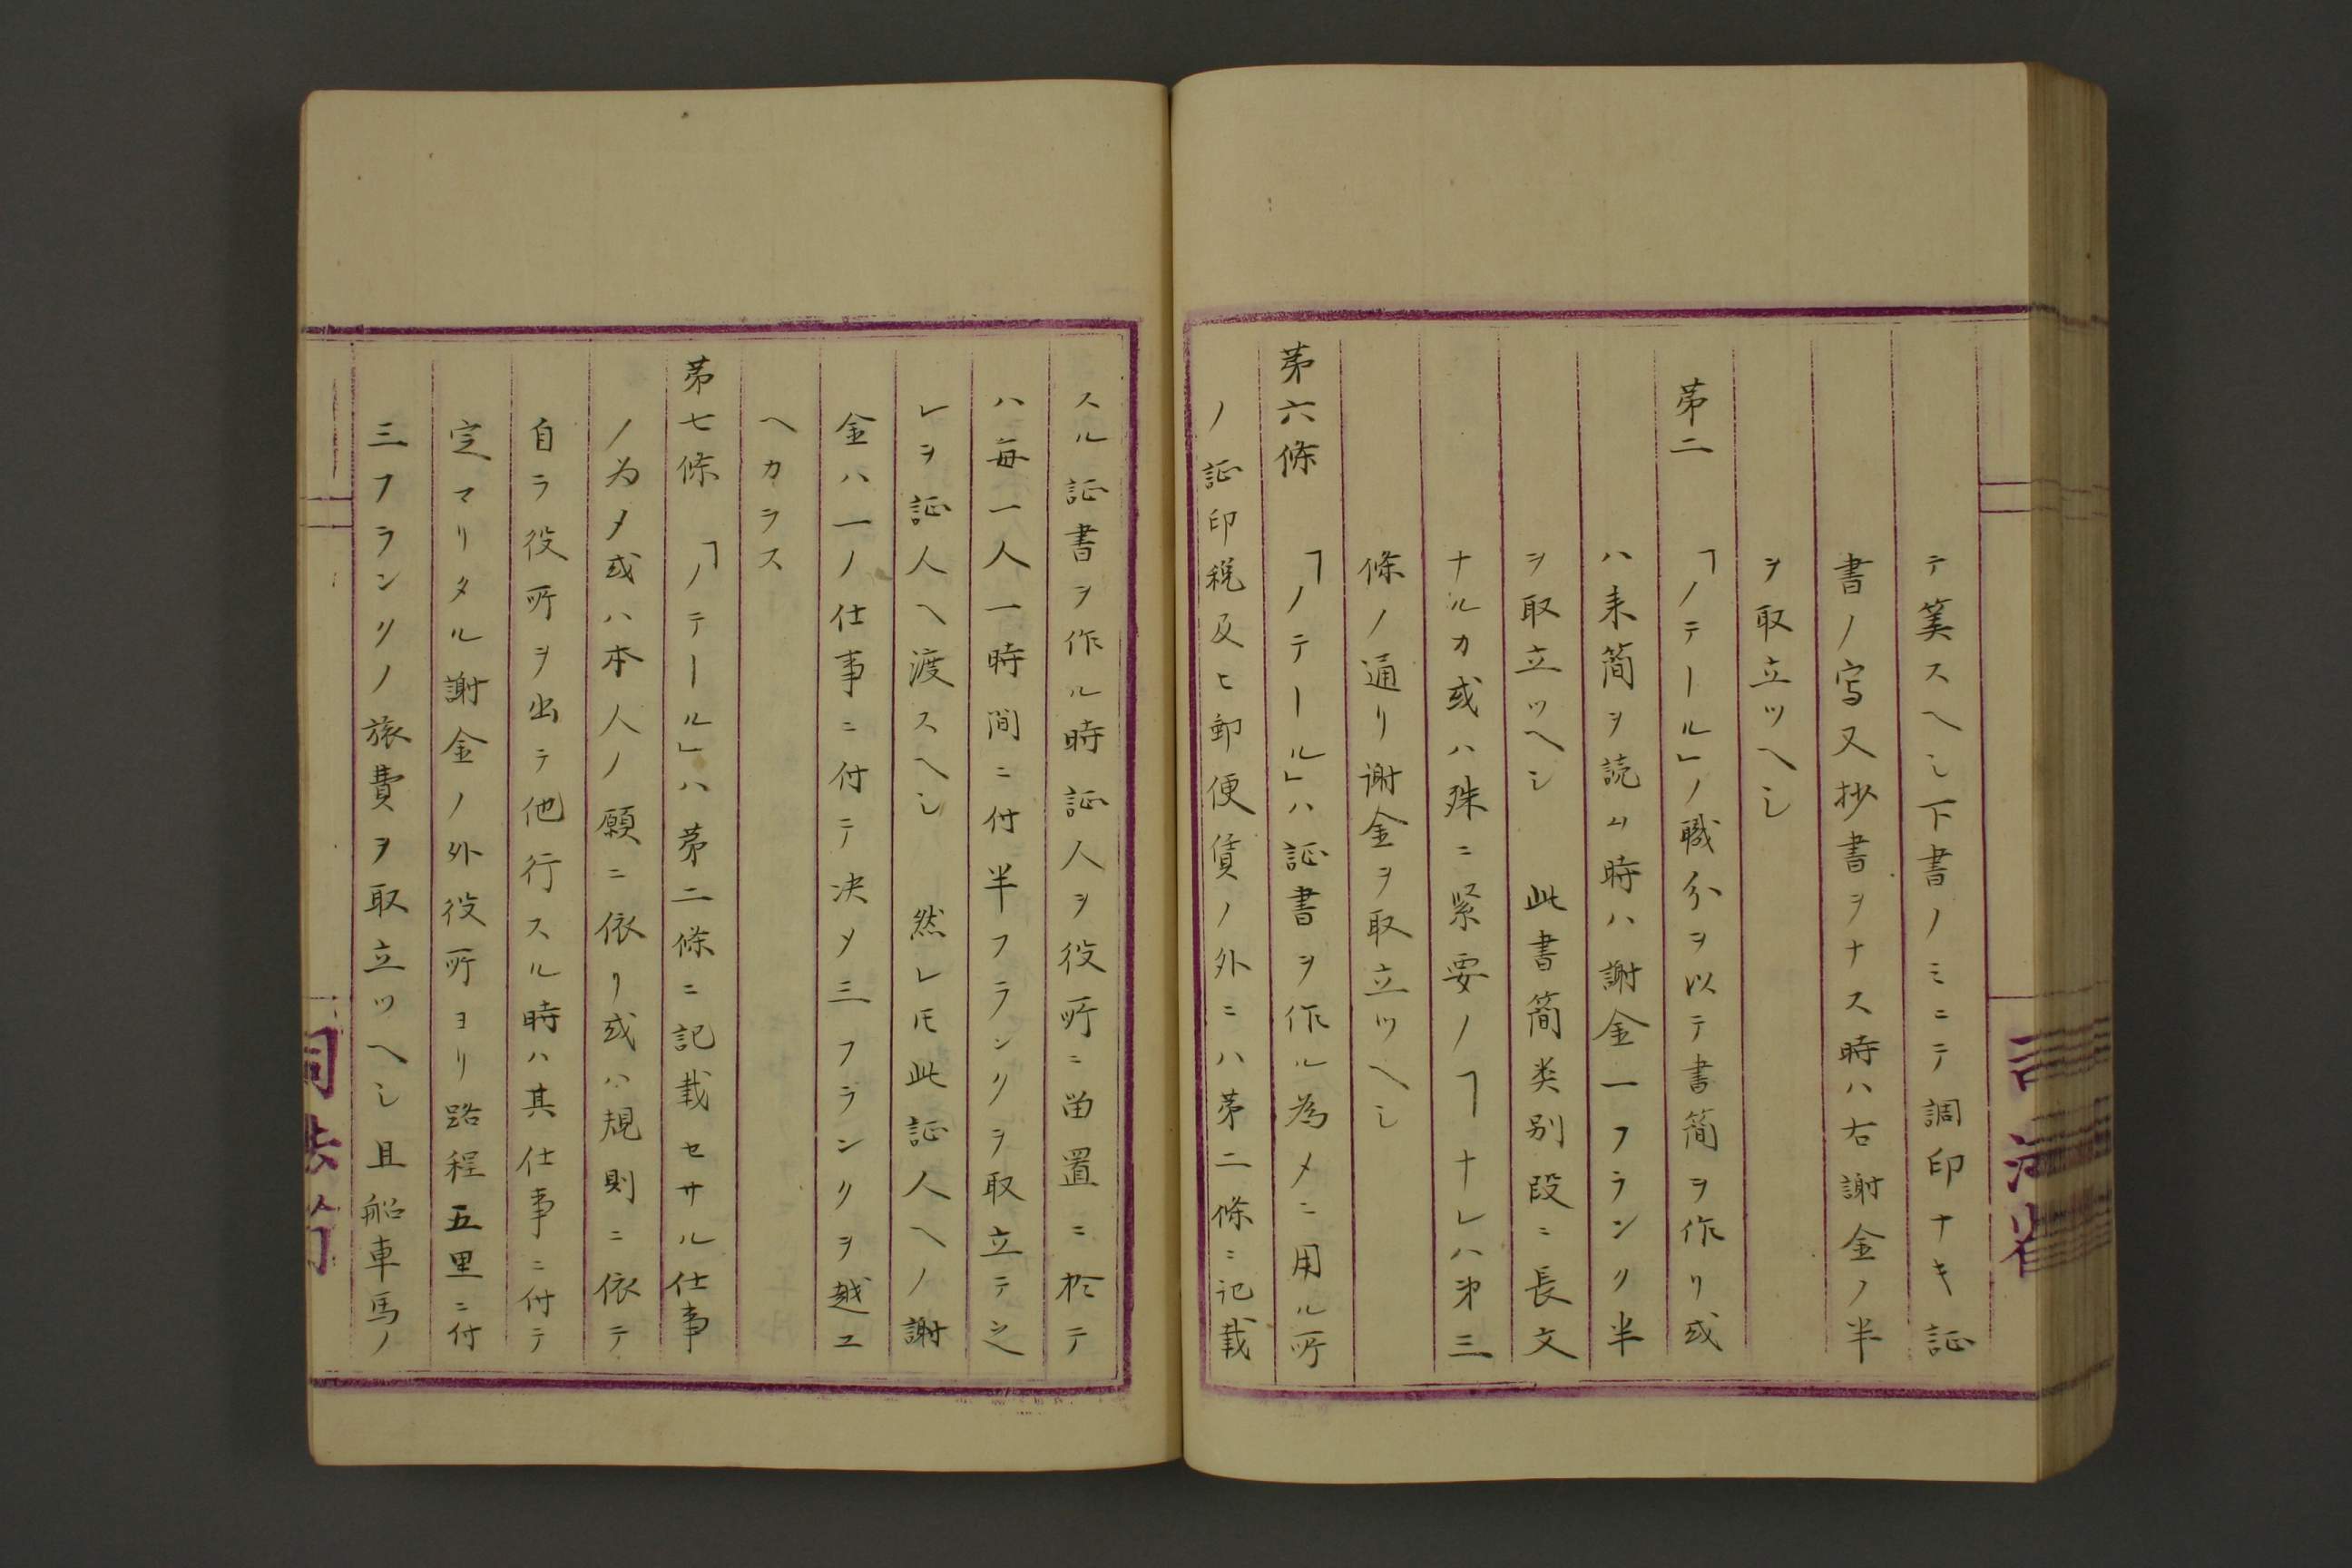 テ筭スヘシ下書ノミニテ調印ナキ証
書ノ写又抄書ヲナス時ハ右謝金ノ半
ヲ取立ツヘシ
第二 「ノテール」ノ職分ヲ以テ書簡ヲ作リ或
ハ来簡ヲ読ム時ハ謝金一フランク半
ヲ取立ツヘシ 此書簡类別段ニ長文
ナルカ或ハ殊ニ緊要ノヿナレハ第三
條ノ通リ謝金ヲ取立ツヘシ
第六條 「ノテール」ハ証書ヲ作ル為メニ用ル所
ノ証印税及ヒ郵便賃ノ外ニハ第二條ニ記載
スル証書ヲ作ル時証人ヲ役所ニ畄置ニ於テ
ハ毎一人一時間ニ付半フランクヲ取立テ之
レヲ証人ヘ渡スヘシ 然レ𪜈此証人ヘノ謝
金ハ一ノ仕事ニ付テ决メ三フランクヲ越ユ
ヘカラス
第七條 「ノテール」ハ第二條ニ記載セサル仕事
ノ為メ或ハ本人ノ願ニ依リ或ハ規則ニ依テ
自ラ役所ヲ出テ他行スル時ハ其仕事ニ付テ
定マリタル謝金ノ外役所ヨリ路程五里ニ付
三フランクノ旅費ヲ取立ツヘシ且船車馬ノ
司法省